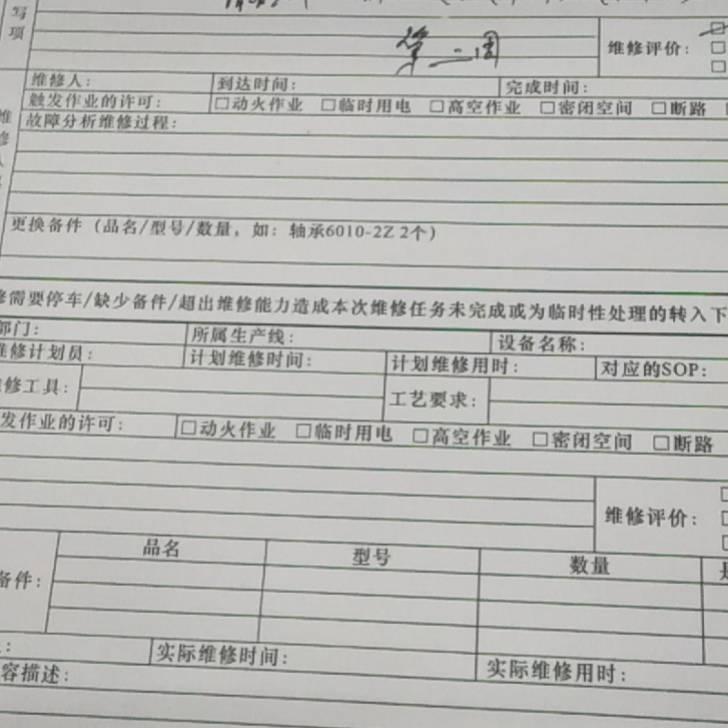 写
项
第二周
维修评价：□
□
□
维修人： 到达时间： 完成时间：
触发作业的许可： □动火作业 □临时用电 □高空作业 □密闭空间 □断路
维
修
人
故障分析维修过程：
更换备件（品名/型号/数量，如：轴承6010-2Z 2个）
修需要停车/缺少备件/超出维修能力造成本次维修任务未完成或为临时性处理的转入下
部门： 所属生产线： 设备名称：
维修计划员： 计划维修时间： 计划维修用时： 对应的SOP：
维修工具： 工艺要求：
发作业的许可： □动火作业 □临时用电 □高空作业 □密闭空间 □断路
维修评价：□
□
□
备件： 品名 型号 数量
： 实际维修时间： 实际维修用时：
容描述：